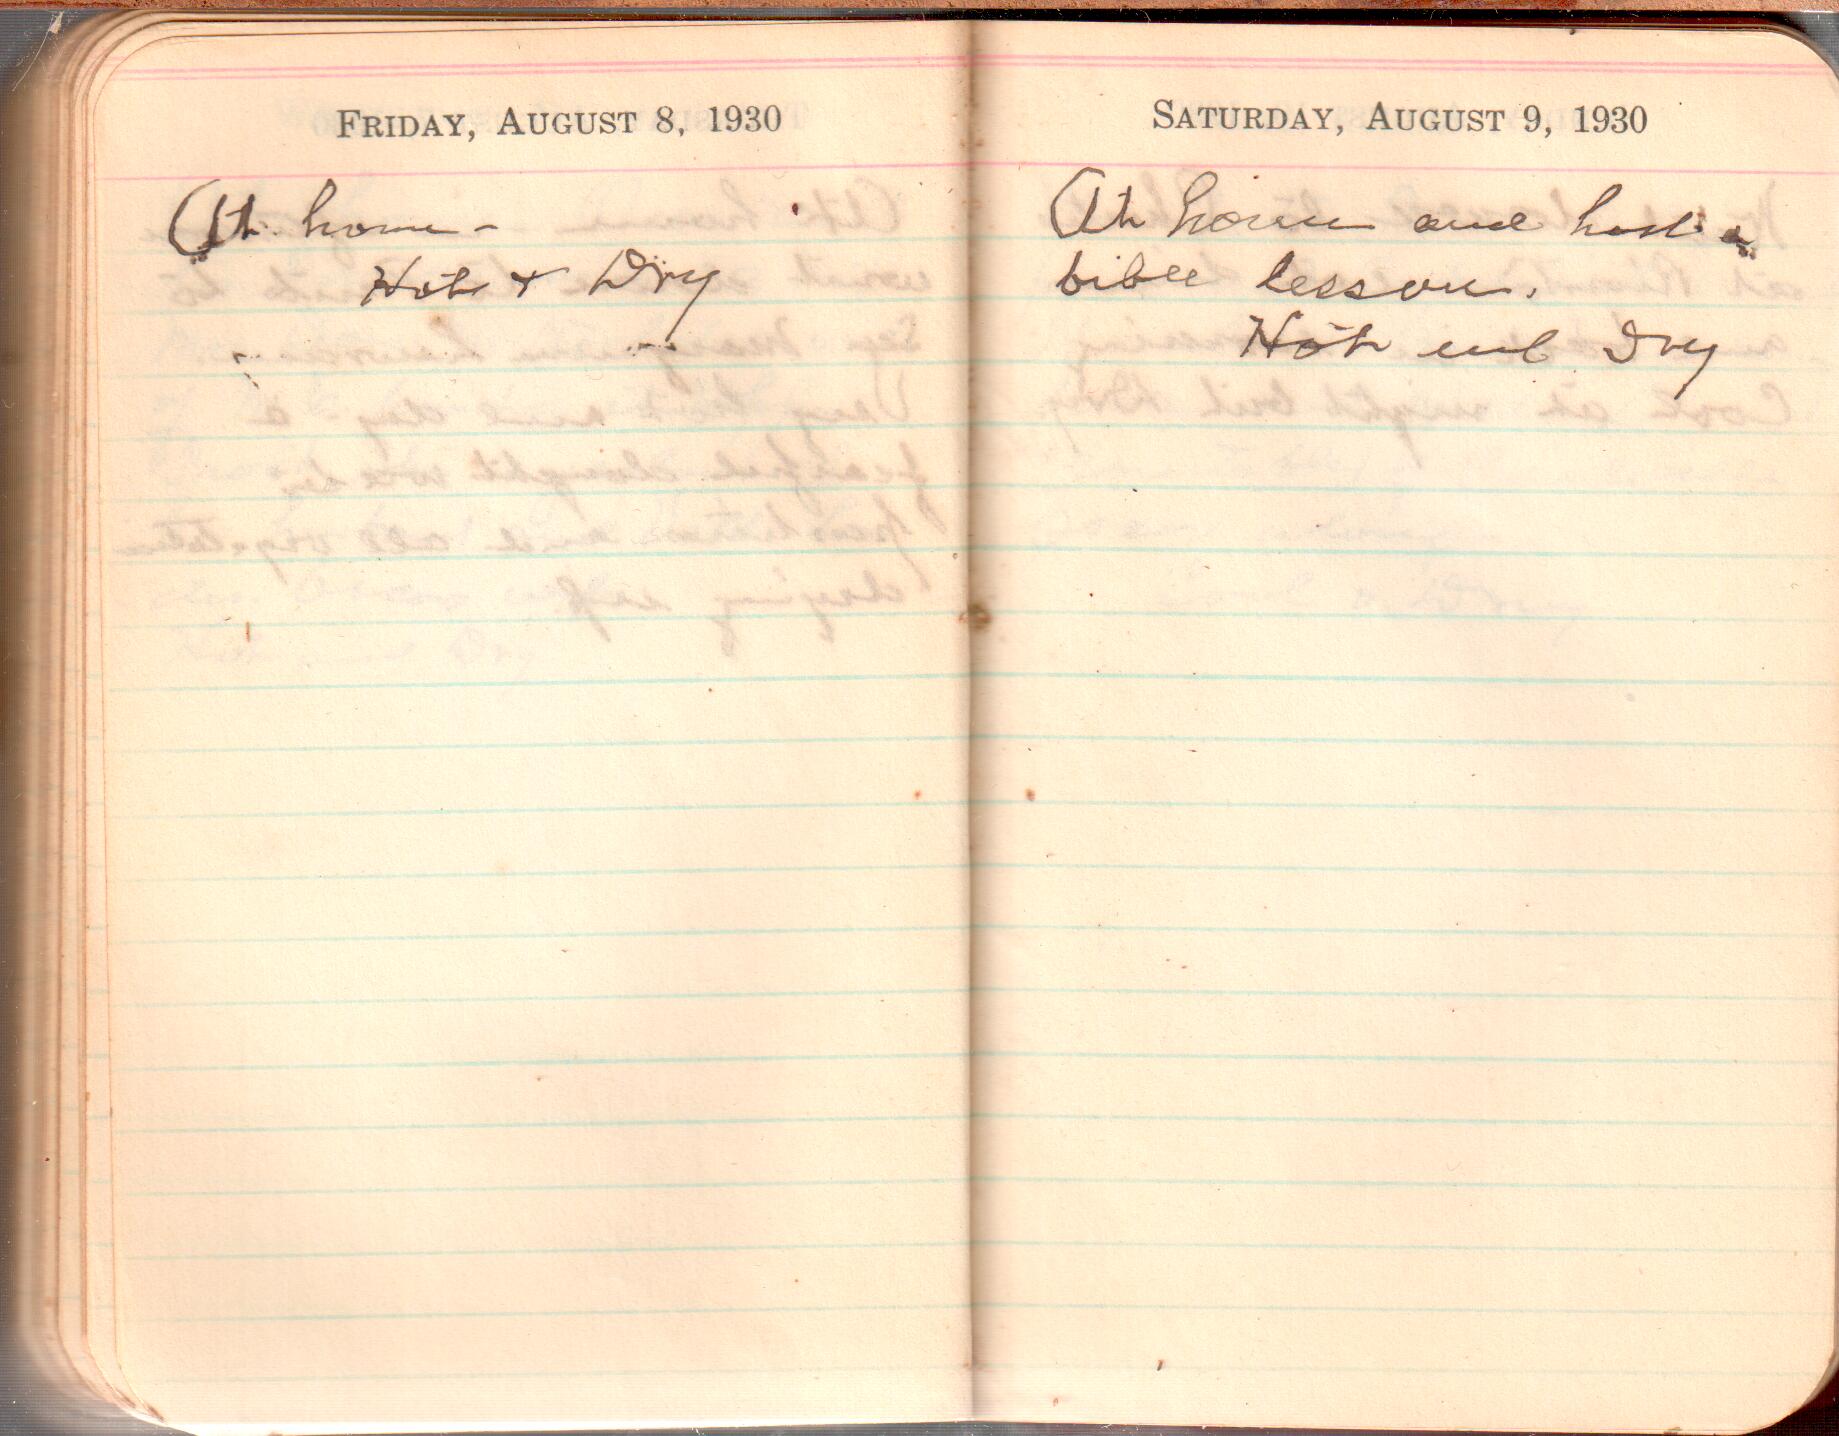 FRIDAY, AUGUST 8, 1930
At home -
Hot & Dry
SATURDAY, AUGUST 9, 1930
At home and had a
bible lesson.
Hot and Dry